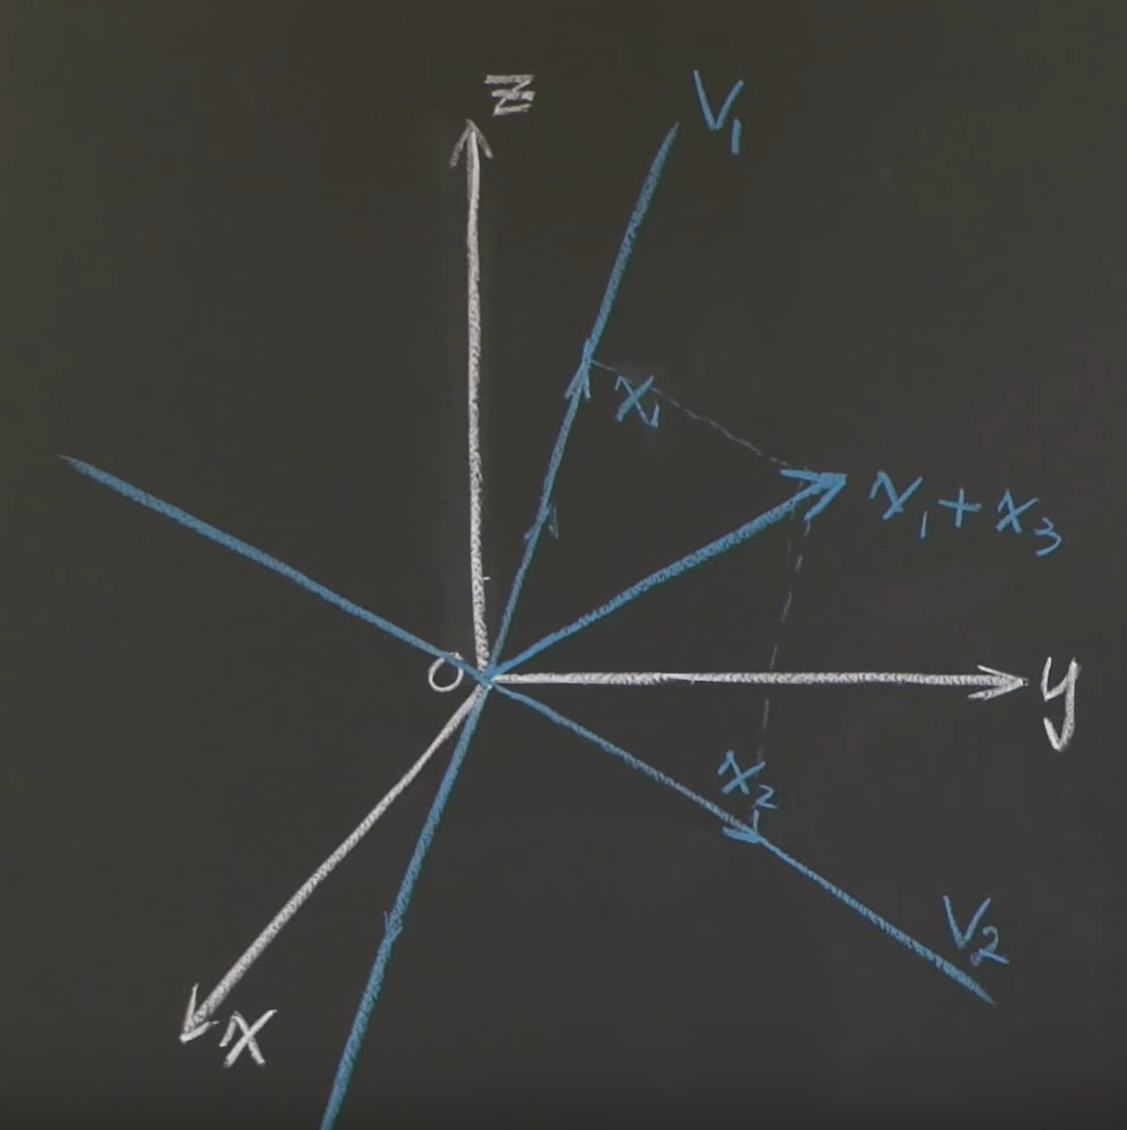 z
V₁
x₁
x₁ + x₃
O
y
x₂
V₂
x